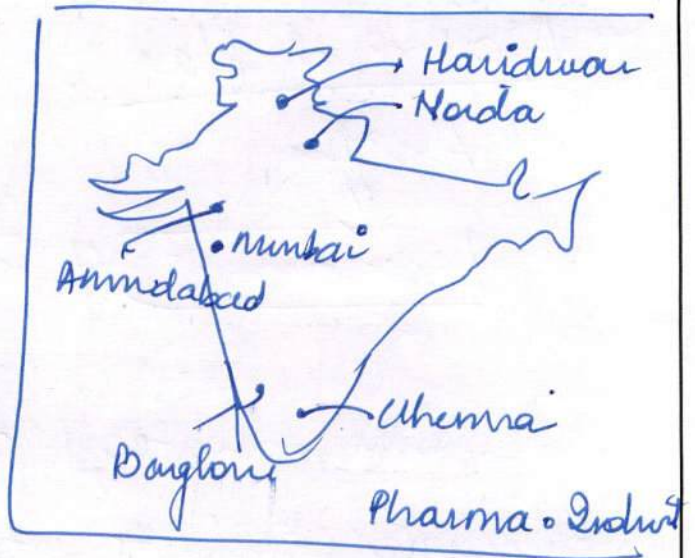 Haridwar
Noida
Mumbai
Ahmdabad
Chennai
Banglore
Pharma. Industry